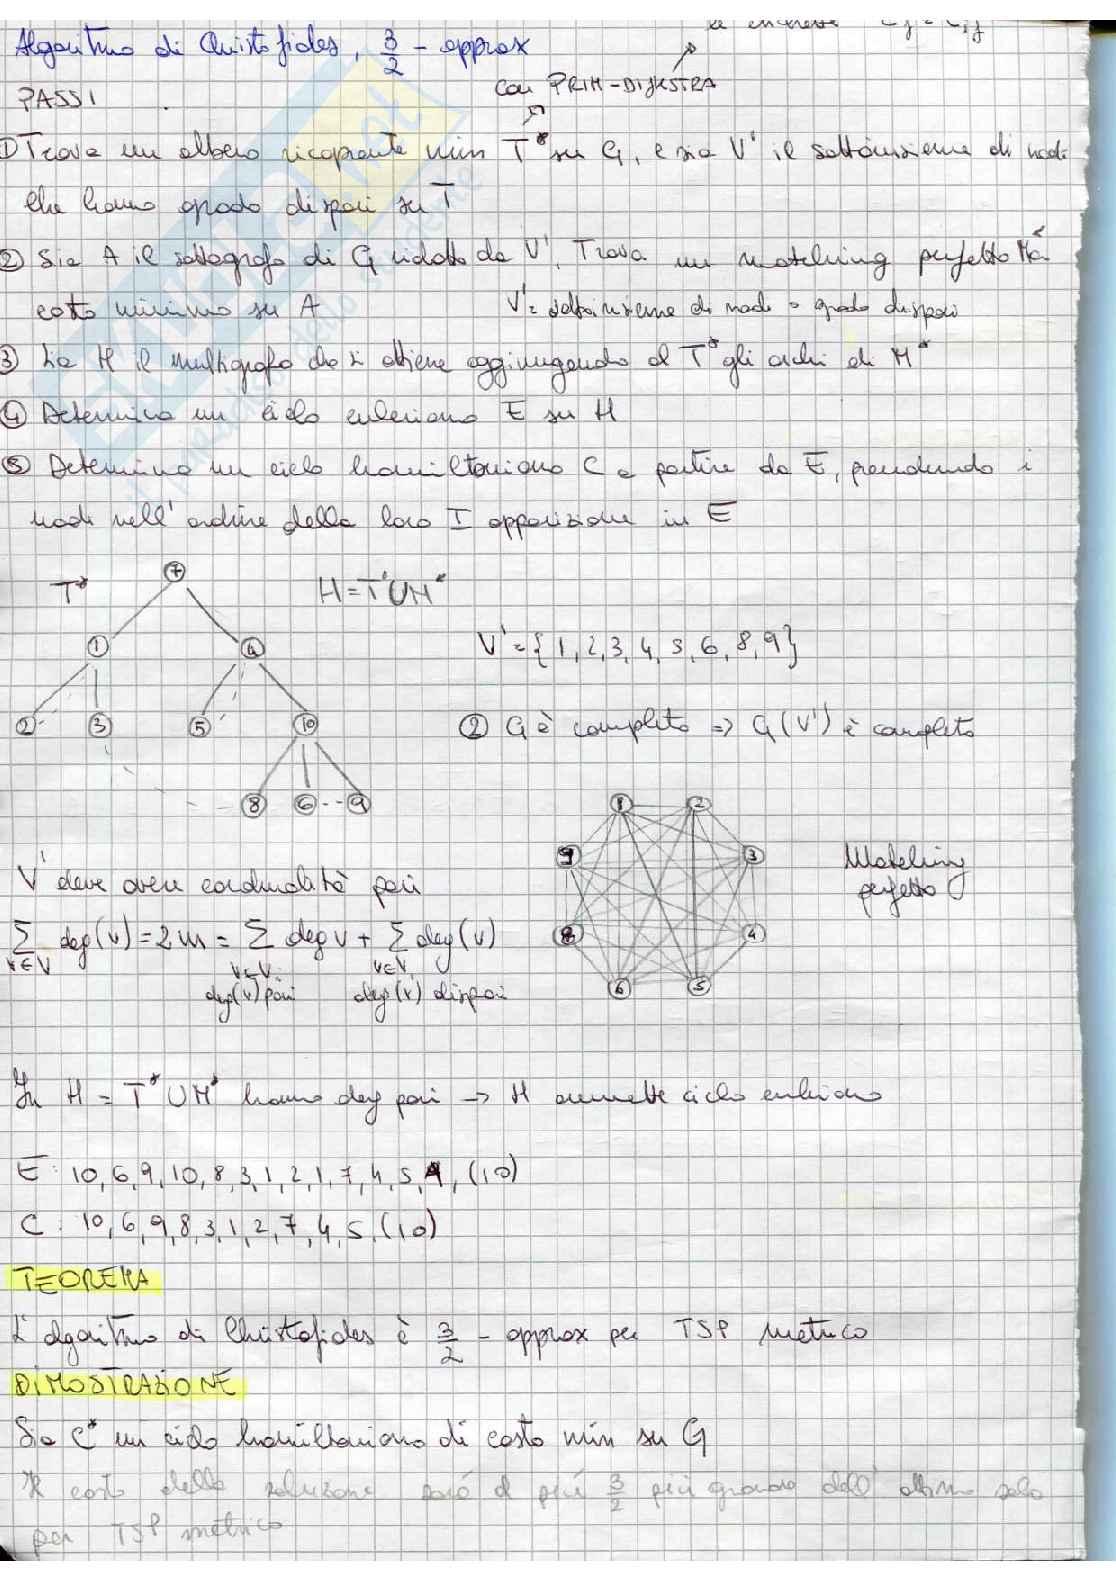 Algoritmo di Christofides, 3/2 - approx
con PRIM-DIJKSTRA
PASSI
① Trova un albero ricoprente min T* su G, e sia V' il sottoinsieme di nodi
che hanno grado dispari su T
② Sia A il sottografo di G ridotto da V', Trova un matching perfetto M* a
costo minimo su A
V' = sottoinsieme di nodi a grado dispari
③ Sia H il multigrafo che si ottiene aggiungendo al T* gli archi di M*
④ Determino un ciclo euleriano E su H
⑤ Determino un ciclo hamiltoniano C a partire da E, prendendo i
nodi nell' ordine della loro I apparizione in E
T*
H = T* ∪ M*
V' = {1, 2, 3, 4, 5, 6, 8, 9}
7
1 4
2 3 5 10
8 6 9
② G è completo => G(V') è completo
1 2
9 3
8 4
6 5
Matching
perfetto
V' deve avere cardinalità pari
∑ deg(v) = 2m = ∑ deg v + ∑ deg(v)
v∈V v∈V: v∈V
deg(v) pari deg(v) dispari
In H = T* ∪ M* hanno deg pari -> H ammette ciclo euleriano
E: 10, 6, 9, 10, 8, 3, 1, 2, 1, 7, 4, 5, 4, (10)
C: 10, 6, 9, 8, 3, 1, 2, 7, 4, 5, (10)
TEOREMA
L' algoritmo di Christofides è 3/2 - approx per TSP metrico
DIMOSTRAZIONE
Sia C* un ciclo hamiltoniano di costo min su G
Il costo della soluzione sarà al più 3/2 più grande dell' ottimo solo
per TSP metrico